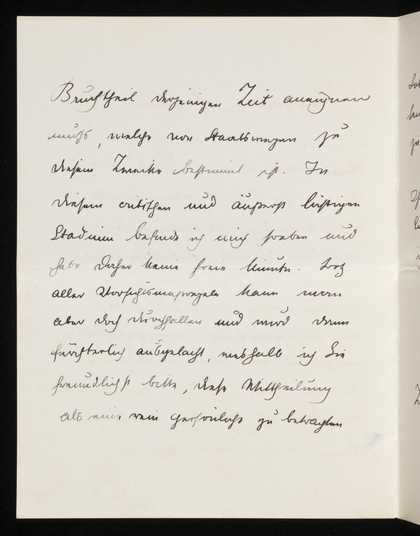 Bruchtheil derjenigen Zeit aneignen
muß, welche von Staatswegen zu
diesem Zwecke bestimmt ist. In
diesem critischen und äußerst lustigen
Stadium befinde ich mich soeben und
habe daher keine freie Minute. Trotz
aller Vorsichtsmaßregeln kann man
aber doch durchfallen und wird dann
fürchterlich ausgelacht, weshalb ich Sie
freundlichst bitte, diese Mittheilung
als eine rein persönliche zu betrachten